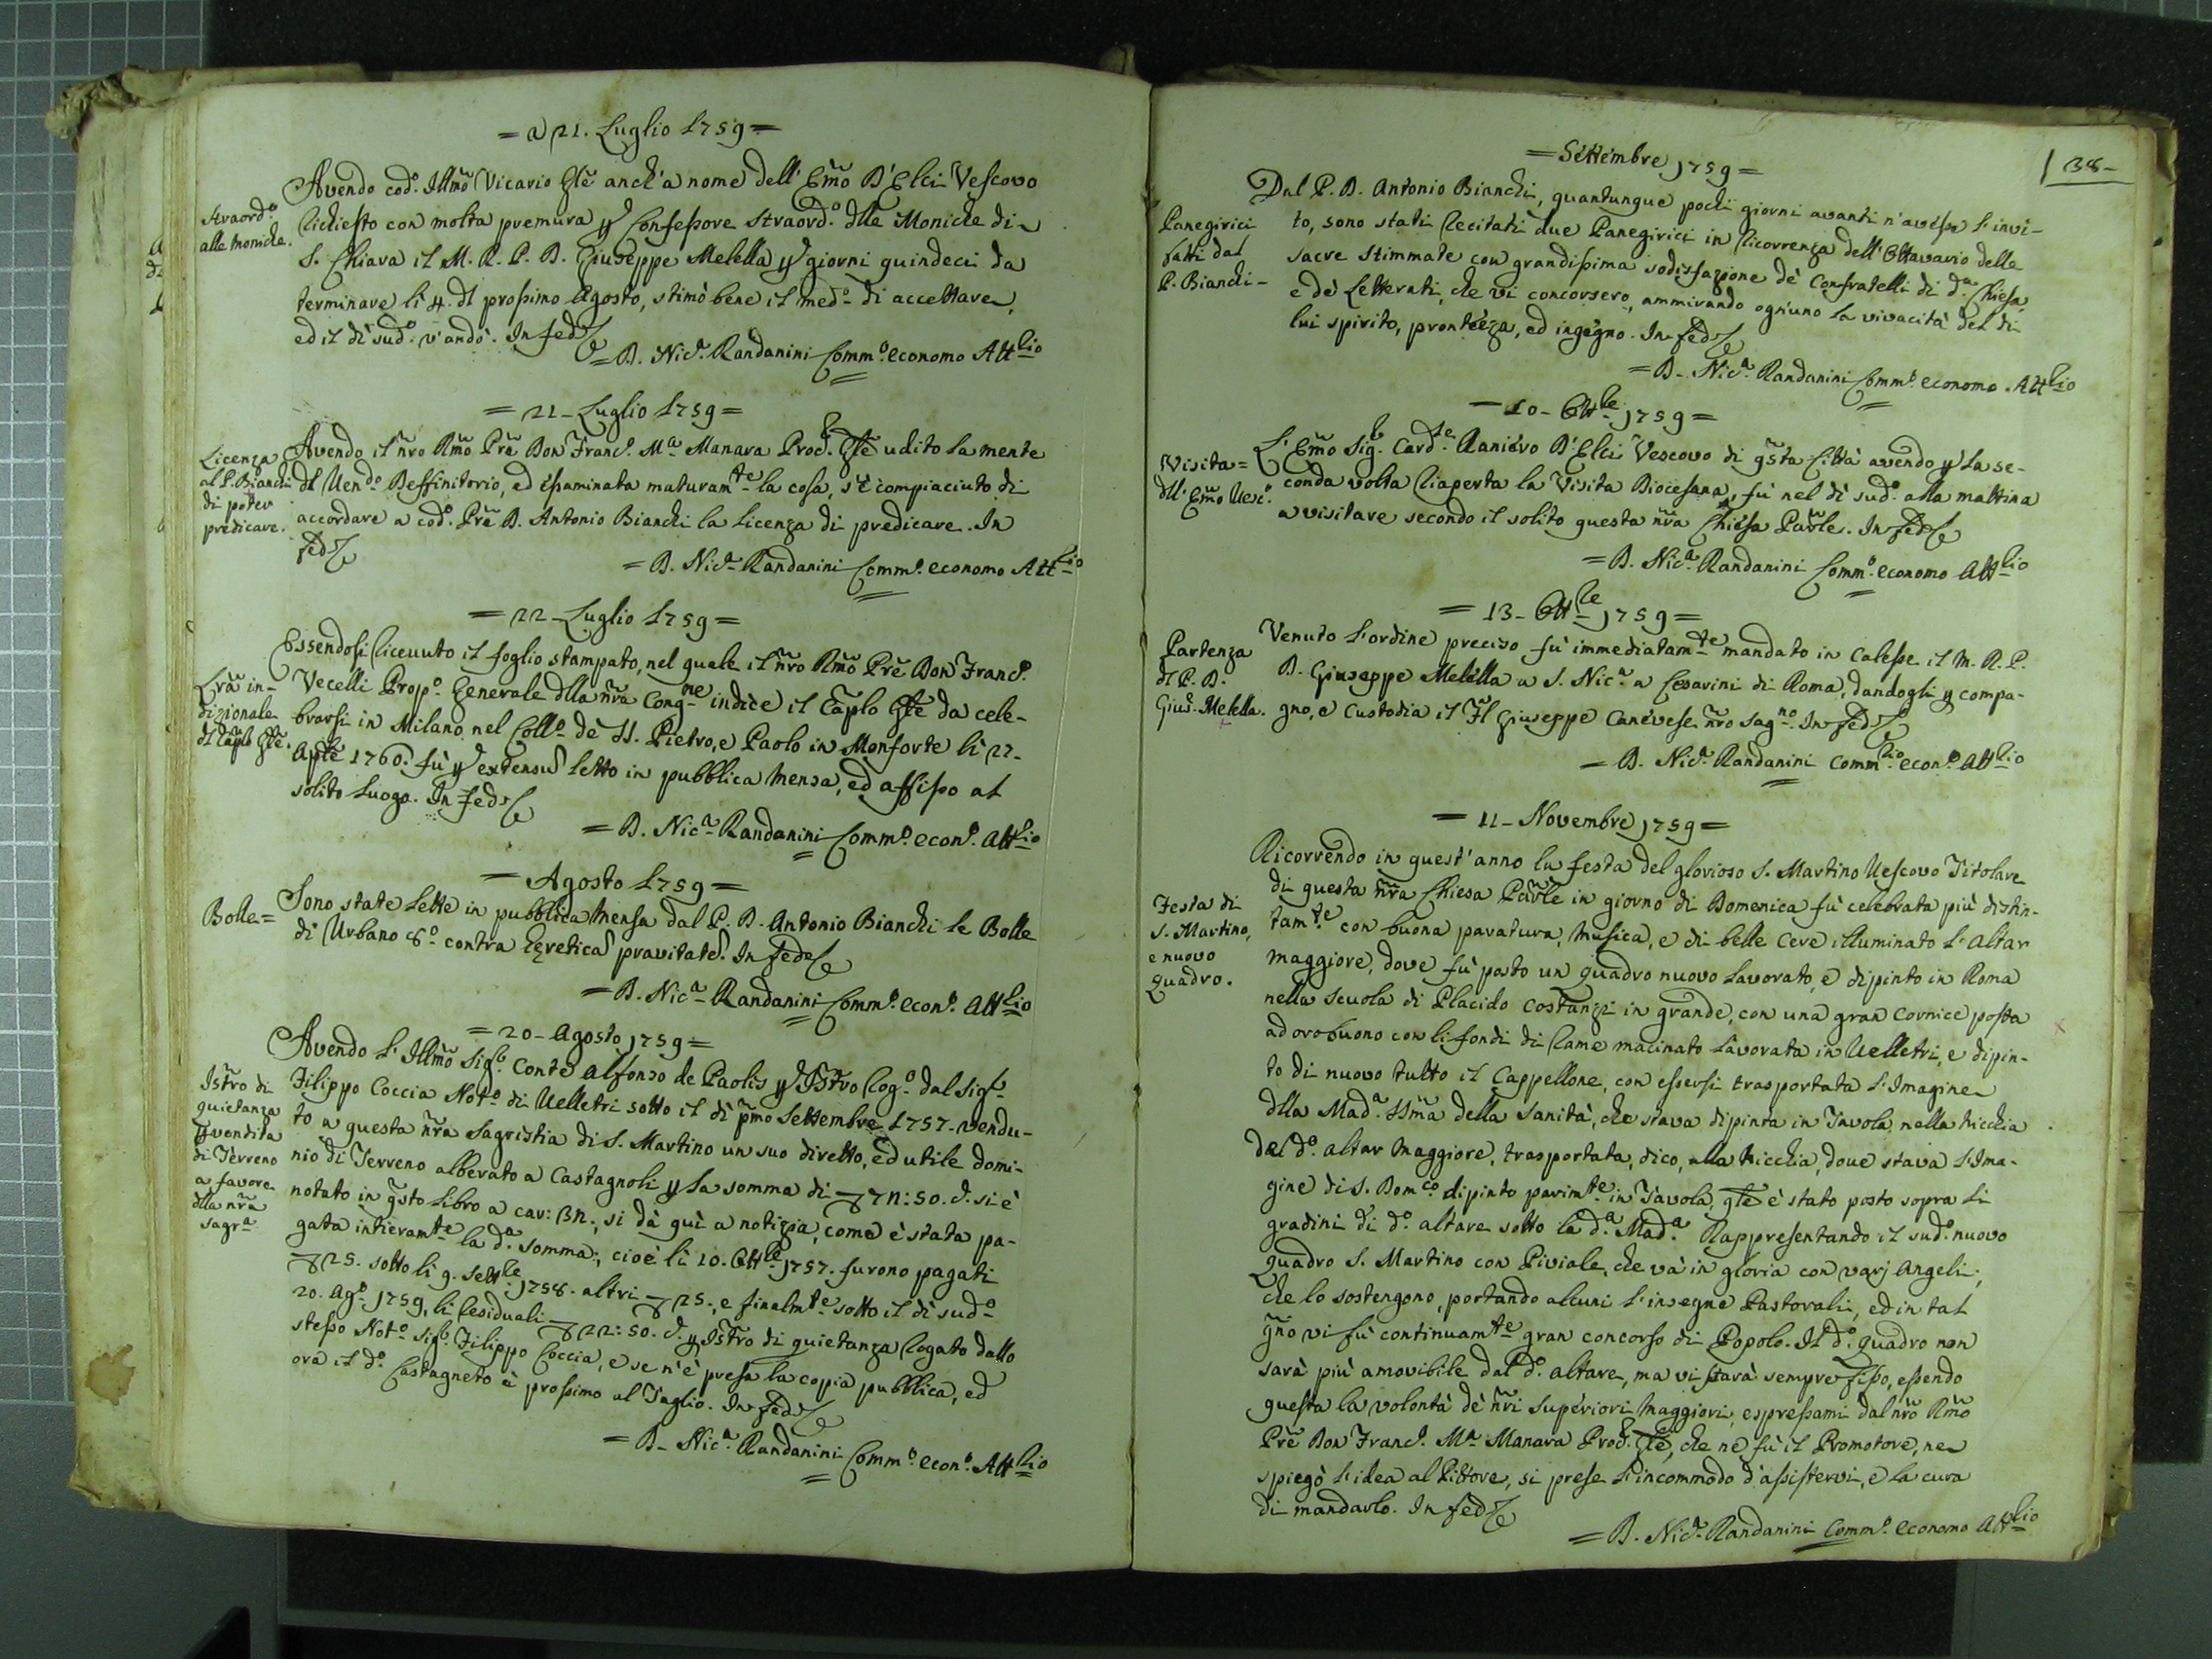 = a 21. Luglio 1759 =
Straord.º
alle Moniche.
Avendo cod.º Illmõ Vicario Gle anch'a nome dell' Emõ D'Elci Vescovo
richiesto con molta premura p Confessore Straord.º dlle Moniche di
S. Chiara il M. R. P. D. Giuseppe Melella p giorni quindeci da
terminare li 4. dl prossimo Agosto, stimò bene il med.º di accettare,
ed il dì sud.º v'andò. In fede
= D. Nic.ª Randanini Comm.º economo Att.lio
= 21 - Luglio 1759 =
Licenza
al P. Bianchi
di poter
predicare.
Avendo il nrõ Rmõ Prẽ Don Franc.º M.ª Manara Proc.r Gle udito la mente
dl Ven.do Deffinitorio, ed essaminata maturam.te la cosa, s'è compiaciuto di
accordare a cod.º Prẽ D. Antonio Bianchi la Licenza di predicare. In
fede
= D. Nic.ª Randanini Comm.º economo Att.lio
= 22 - Luglio 1759 =
Lrã in-
dizionale
dl Caplo Gle.
Essendosi ricevuto il foglio stampato, nel quale il nrõ Rmõ Prẽ Don Franc.º
Vecelli Prop.º Generale dlla nrã Cong.ne indice il Caplo Gle da cele-
brarsi in Milano nel Coll.º de' SS. Pietro, e Paolo in Monforte li 22.
Aple 1760. fù p extensu letto in pubblica mensa, ed affisso al
solito luogo. In fede
= D. Nic.ª Randanini Comm.º econ.º Att.lio
= Agosto 1759 =
Bolle =
Sono state lette in pubblica Mensa dal P. D. Antonio Bianchi le Bolle
di Urbano 8.º contra hereticã pravitatẽ. In fede
= D. Nic.ª Randanini Comm.º econ.º Att.lio
= 20 - Agosto 1759 =
Istrõ di
quietanza
p vendita
di Terreno
a favore
dlla nrã
Sagr.ª
Avendo l'Illmõ Sig.r Conte Alfonso de Paolis p Istrõ rog.º dal Sig.r
Filippo Coccia Not.º di Velletri sotto il dì pmõ Settembre 1757. vendu-
to a questa nrã Sagristia di S. Martino un suo diretto, ed utile domi-
nio di Terreno alberato a Castagnoli p la somma di 72: 50. d. si è
notato in qsto Libro a car: 132., si dà quì a notizia, come è stata pa-
gata intieram.te la d.ª somma; cioè li 10. Ott.bre 1757. furono pagati
25. sotto li 9. Sett.bre 1758. altri 25., e finalm.te sotto il dì sud.º
20. Ag.º 1759, li residuali 22: 50. d. p Istrõ di quietanza rogato dallo
stesso Not.º Sig.r Filippo Coccia, e se n'è presa la copia pubblica, ed
ora il d.º Castagneto è prossimo al Taglio. In fede
= D. Nic.ª Randanini Comm.º econ.º Att.lio
138 -
= Settembre 1759 =
Panegirici
fatti dal
P. Bianchi -
Dal P. D. Antonio Bianchi, quantunque pochi giorni avanti n'avesse l'invi-
to, sono stati recitati due Panegirici in ricorrenza dell'Ottavario delle
sacre Stimmate con grandissima sodisfazione de' Confratelli di d.ª Chiesa,
e de' Letterati, che vi concorsero, ammirando ogn'uno la vivacità del di
lui spirito, prontezza, ed ingegno. In fede
= D. Nic.ª Randanini Comm.º economo Att.lio
= 10 - Ott.bre 1759 =
Visita =
dll' Emõ Vesc.º
L'Emõ Sig.r Card.le Raniero D'Elci Vescovo di qsta Città avendo p la se-
conda volta riaperta la Visita Diocesana, fù nel dì sud.º alla mattina
a visitare secondo il solito questa nrã Chiesa Parle. In fede
= D. Nic.ª Randanini Comm.º economo Att.lio
= 13 - Ott.bre 1759 =
Partenza
dl P. D.
Gius. Melella.
Venuto l'ordine preciso fù immediatam.te mandato in Calesse il M. R. P.
D. Giuseppe Melella a S. Nic.ª a Cesarini di Roma, dandogli p compa-
gno, e Custodia il Fl Giuseppe Canevese nrõ Sag.no In fede
= D. Nic.ª Randanini Comm.rio econ.º Att.lio
= 11 - Novembre 1759 =
Festa di
S. Martino,
e nuovo
quadro.
Ricorrendo in quest'anno la festa del glorioso S. Martino Vescovo Titolare
di questa nrã Chiesa Parle in giorno di Domenica fù celebrata più distin-
tam.te con buona paratura, Musica, e di belle Cere illuminato l'Altar
maggiore, dove fù posto un quadro nuovo lavorato, e dipinto in Roma
nella Scuola di Placido Costanzi in grande, con una gran Cornice posta
ad oro buono con li fondi di rame macinato lavorata in Velletri, e dipin-
to di nuovo tutto il Cappellone, con essersi trasportata l'Imagine
dlla Mad.ª SSmã della Sanità, che stava dipinta in Tavola nella Nicchia
del d.º altar Maggiore, trasportata, dico, alla Nicchia, dove stava l'Ima-
gine di S. Dom.co dipinto parim.te in Tavola, qle è stato posto sopra li
gradini di d.º altare sotto la d.ª Mad.ª Rappresentando il sud.º nuovo
quadro S. Martino con Piviale, che và in gloria con varj Angeli,
che lo sostengono, portando alcuni l'insegne Pastorali, ed in tal
gno vi fù continuam.te gran concorso di Popolo. Il d.º quadro non
sarà più amovibile dal d.º altare, ma vi starà sempre fisso, essendo
questa la volontà de' nri Superiori Maggiori, espressami dal nrõ Rmõ
Prẽ Don Franc.º M.ª Manara Proc.r Gle, che ne fù il Promotore, ne
spiegò l'idea al Pittore, si prese l'incommodo d'assistervi, e la cura
di mandarlo. In fede
= D. Nic.ª Randanini Comm.º economo Att.lio